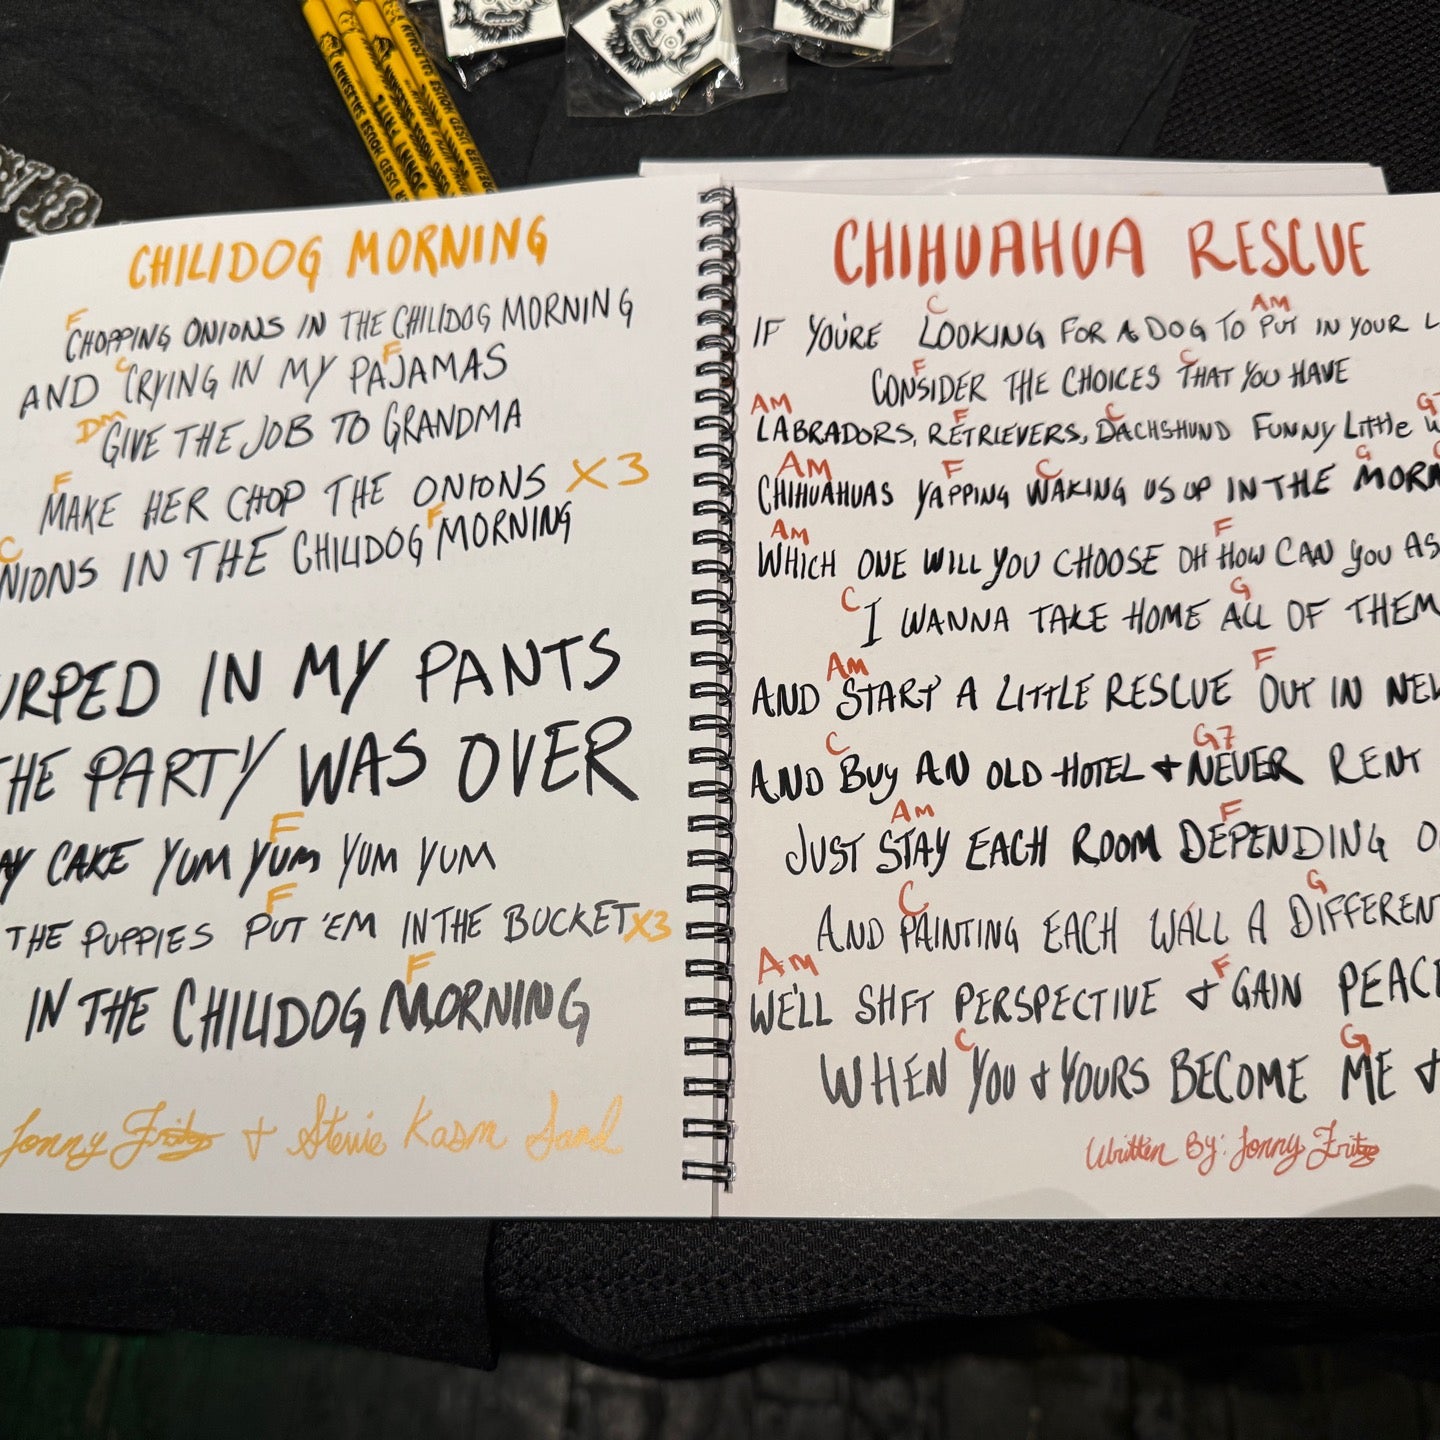 CHILIDOG MORNING
F
CHOPPING ONIONS IN THE CHILIDOG MORNING
C F
AND CRYING IN MY PAJAMAS
Dm
GIVE THE JOB TO GRANDMA
F
MAKE HER CHOP THE ONIONS X3
C F
NIONS IN THE CHILIDOG MORNING
URPED IN MY PANTS
THE PARTY WAS OVER
F
AY CAKE YUM YUM YUM YUM
F
THE PUPPIES PUT 'EM IN THE BUCKET X3
F
IN THE CHILIDOG MORNING
Jonny Fritz & Stevie
CHIHUAHUA RESCUE
C AM
IF YOU'RE LOOKING FOR A DOG TO PUT IN YOUR L
F C
CONSIDER THE CHOICES THAT YOU HAVE
AM F C G7
LABRADORS, RETRIEVERS, DACHSHUND FUNNY LITTLE W
AM F C G
CHIHUAHUAS YAPPING WAKING US UP IN THE MORN
AM F
WHICH ONE WILL YOU CHOOSE OH HOW CAN YOU AS
C G
I WANNA TAKE HOME ALL OF THEM
AM F
AND START A LITTLE RESCUE OUT IN NEW
C G7
AND BUY AN OLD HOTEL & NEVER RENT
AM F
JUST STAY EACH ROOM DEPENDING O
C G
AND PAINTING EACH WALL A DIFFERENT
AM F
WE'LL SHFT PERSPECTIVE & GAIN PEACE
C G
WHEN YOU & YOURS BECOME ME &
Written By: Jonny Fritz